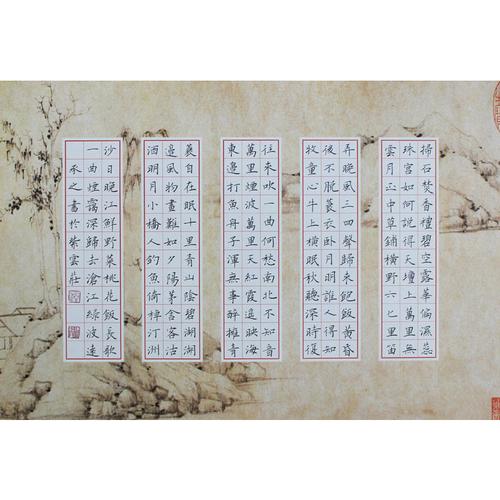 掃石焚香檀碧空露華偏濕蕊
珠宮如何說得天壇上萬里無
雲月正中草鋪橫野六七里笛
弄晚風三四聲歸來飽飯黃昏
後不脫蓑衣臥月明誰人解得
牧童心牛上橫眠秋聽深時後
往來吹一曲何愁南北不知音
萬里煙波萬里天紅霞遥映海
東邊打魚舟子渾無事醉擁青
蓑自在眠十里青山陰碧湖湖
邊風物畫難如夕陽茅舍客沽
酒明月小橋人釣魚倚棹汀洲
沙日晚江鮮野菜桃花飯長歌
一曲煙靄深歸去滄江綠波遠
承之書於紫雲莊